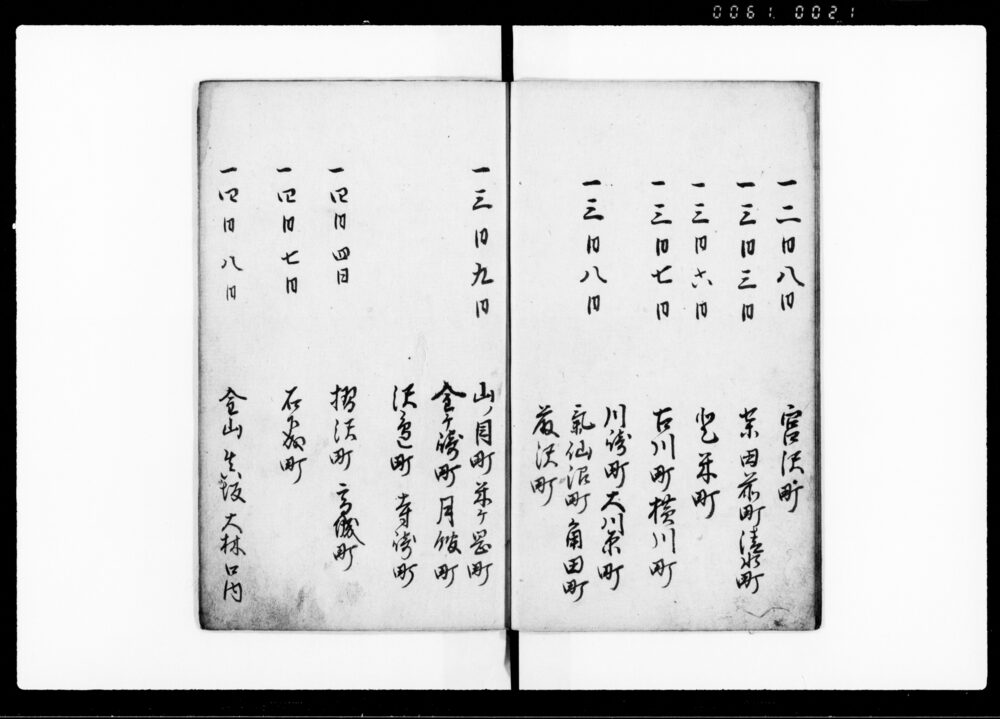 0061 0021
一二日八日 宮沢町
一三日三日 岩田前町 清水町
一三日六日 登米町
一三日七日 古川町 横川町
一三日八日 川崎町 大川原町
氣仙沼町 角田町
藤沢町
一三日九日 山ノ目町 前ケ岡町
金ケ崎町 月舘町
沢邉町 寺崎町
一四日四日 摺沢町 高城町
一四日七日 石森町
一四日八日 金山 大林 口内